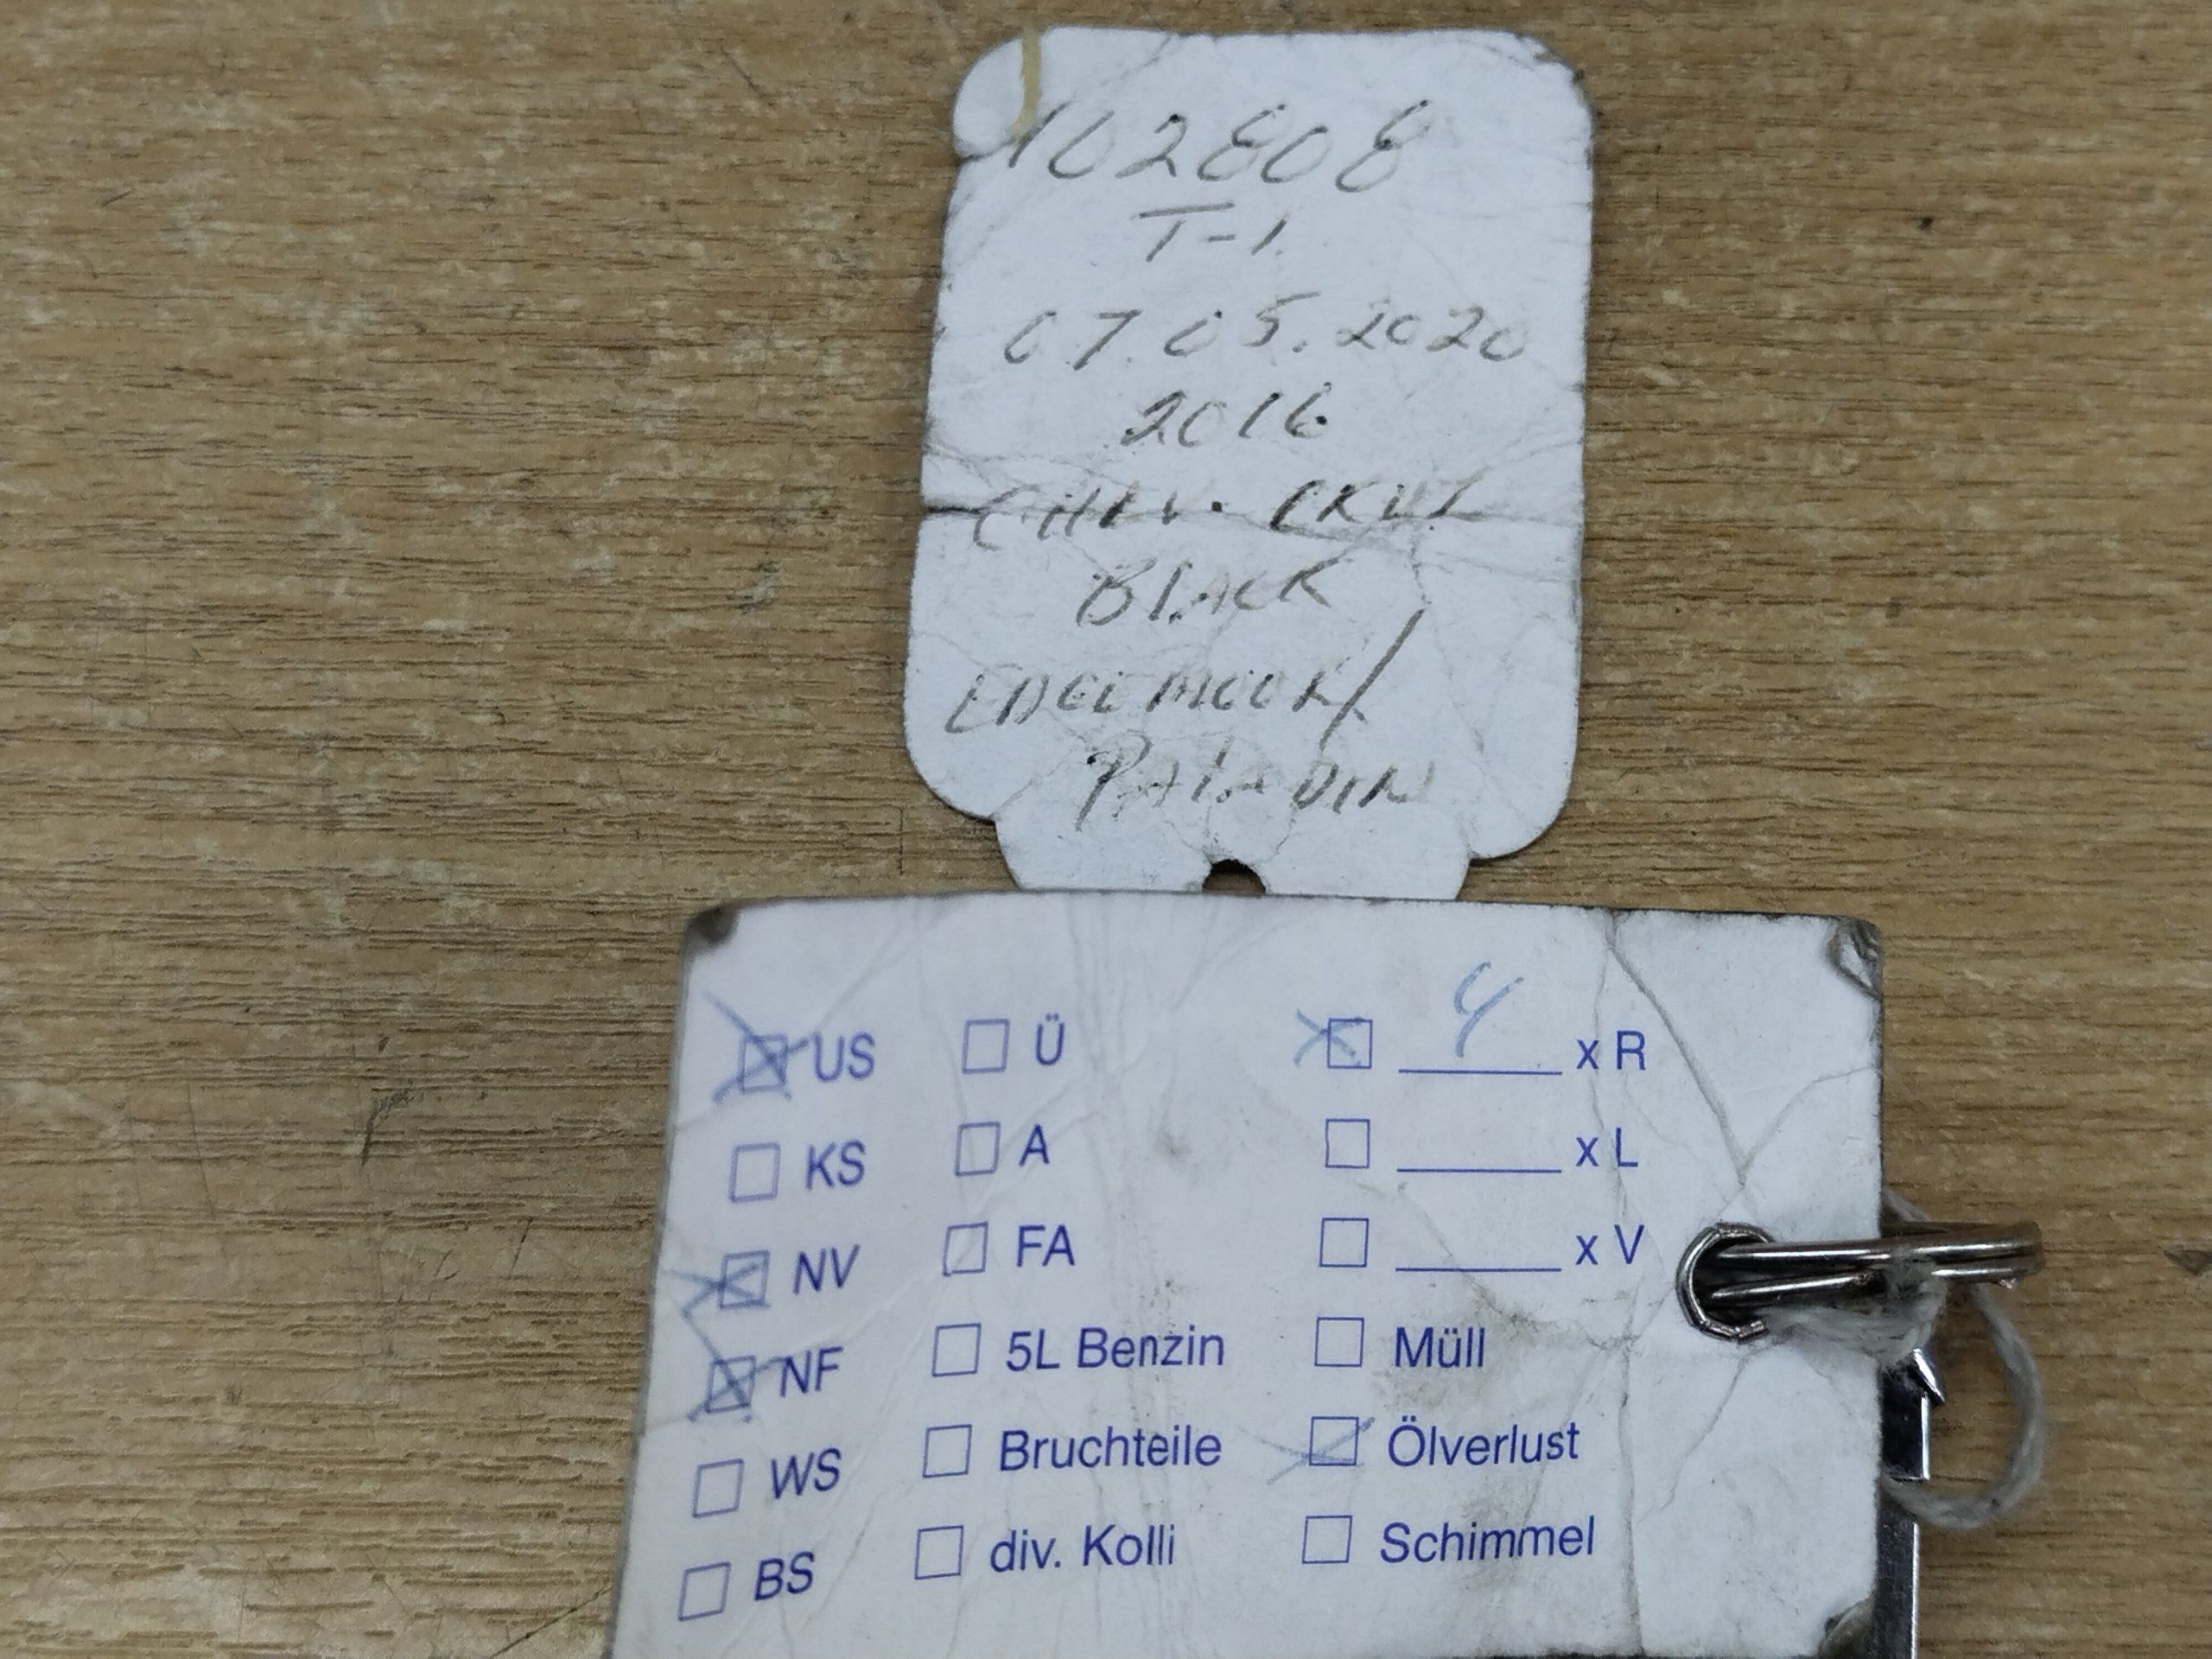 102808
T-1
07.05.2020
2016
CHEV. CRUZ
BLACK
EDGEMOOR/
PALADIN
US Ü 4 x R
KS A x L
NV FA x V
NF 5L Benzin Müll
WS Bruchteile Ölverlust
BS div. Kolli Schimmel